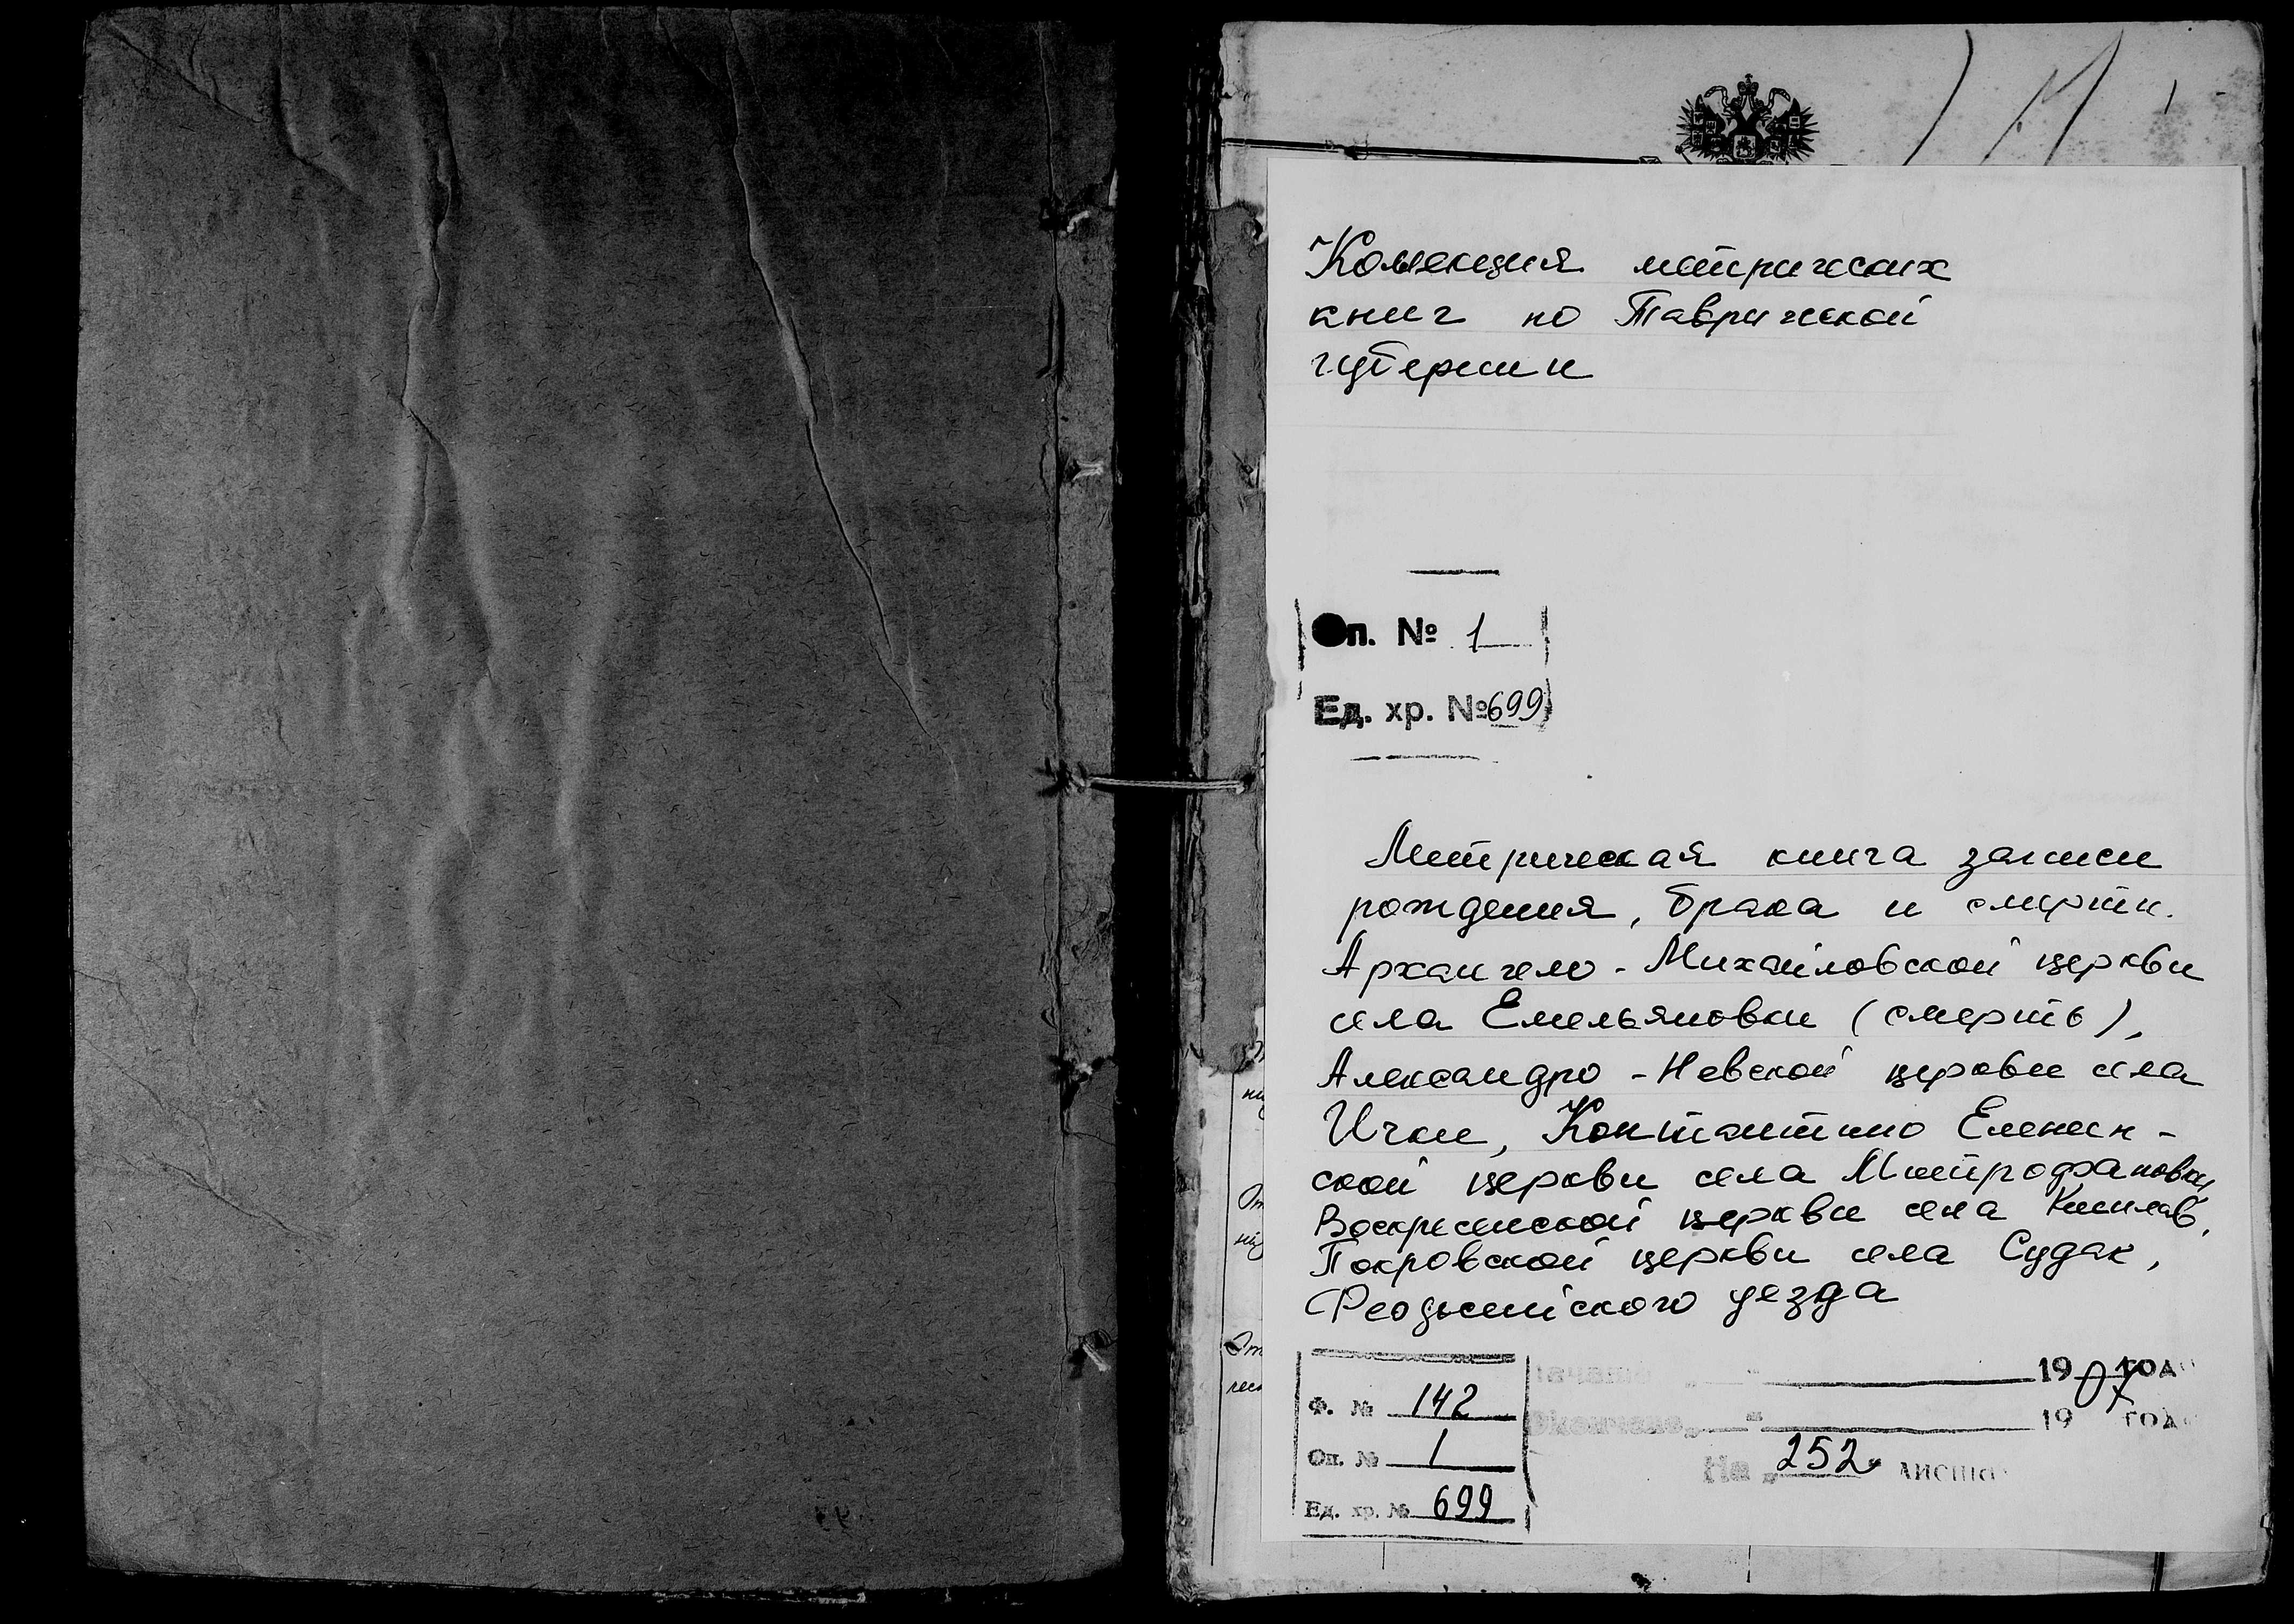 Коллекция метрических
книг по Таврической
губернии
Оп. № 1
Ед. хр. № 699
Метрическая книга записи
рождения, брака и смерти.
Архангело-Михайловской церкви
села Емельяновки (смерть),
Александро-Невской церкви села
Ички, Контантино Еленин-
ской церкви села Митрофановки,
Воскресенской церкви села Кишлав,
Покровской церкви села Судак,
Феодосийского уезда
Ф. № 142
Оп. № 1
Ед. хр. № 699
1907 год
19 год
На 252 листах